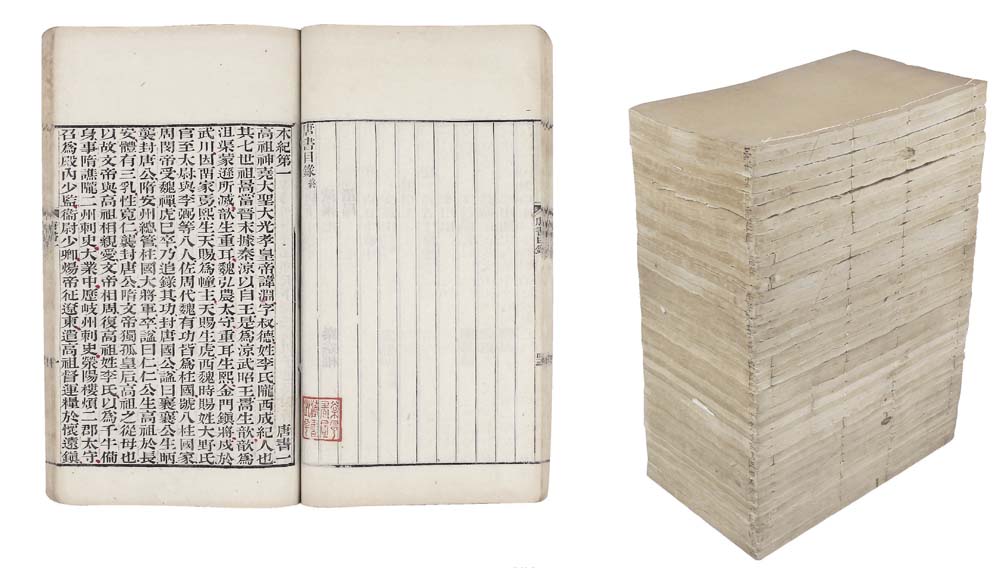 唐書目錄
唐書目錄終
本紀第一　唐書一
高祖神堯大聖大光孝皇帝諱淵字叔德姓李氏隴西成紀人也
其七世祖暠當晉末據秦涼以自王是爲涼武昭王暠生歆歆爲
沮渠蒙遜所滅歆生重耳魏弘農太守重耳生熙金門鎭將戍於
武川因畱家焉熙生天賜爲幢主天賜生虎西魏時賜姓大野氏
官至太尉與李弼等八人佐周代魏有功皆爲柱國號八柱國家
周閔帝受魏禪虎已卒乃追錄其功封唐國公諡曰襄襄公生昞
襲封唐公隋安州總管柱國大將軍卒諡曰仁仁公生高祖於長
安體有三乳性寬仁襲封唐公隋文帝獨孤皇后高祖之從母也
以故文帝與高祖相親愛文帝相周復高祖姓李氏以爲千牛備
身事隋譙隴二州刺史大業中歷岐州刺史滎陽樓煩二郡太守
召爲殿內少監衞尉少卿煬帝征遼東遣高祖督運糧於懷遠鎭